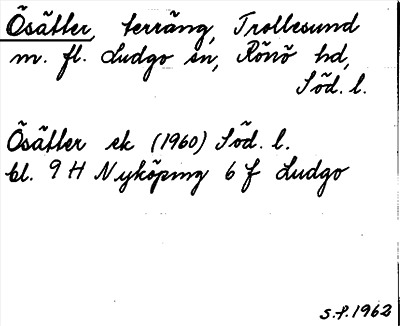 Ösätter, terräng, Trollesund
m. fl. Ludgo sn, Rönö hd,
Söd. l.
Ösätter ek (1960) Söd. l.
bl. 9 H Nyköping 6 f Ludgo
S.F. 1962